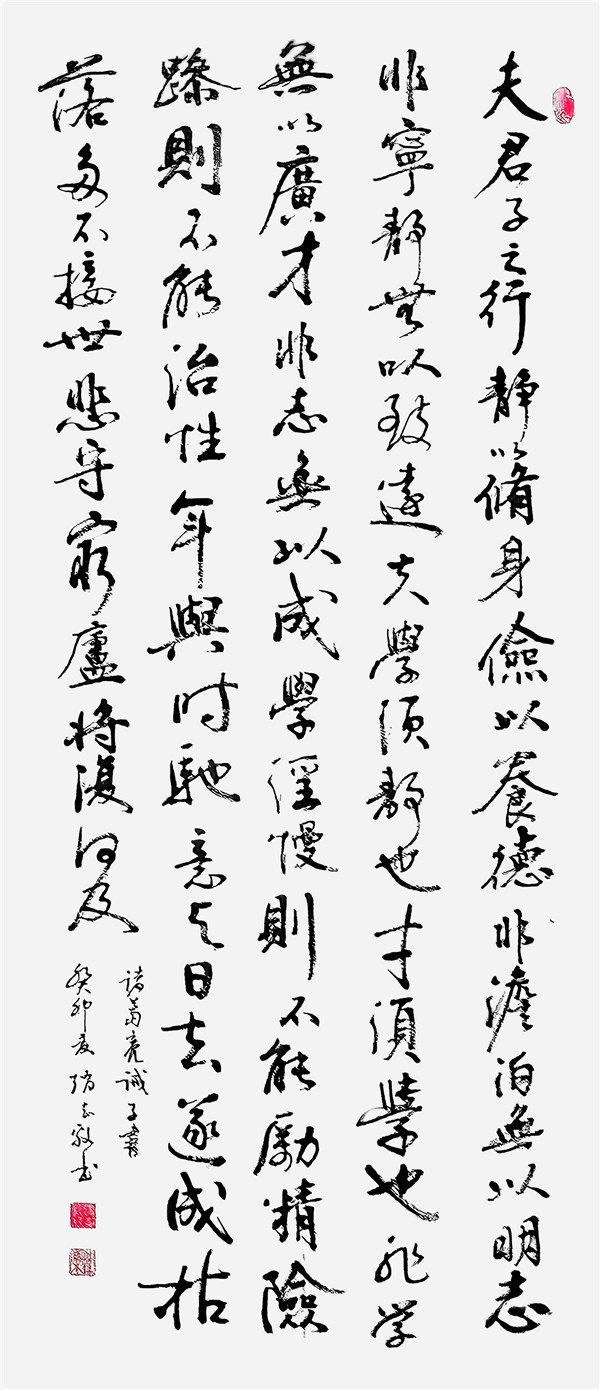 夫君子之行静以脩身儉以養德非澹泊無以明志
非寧静無以致遠夫學須静也才須學也非学
無以廣才非志無以成學淫慢則不能勵精險
躁則不能治性年與时馳意与日去遂成枯
落多不接世悲守窮廬將復何及
諸葛亮誡子書
癸卯夏志书